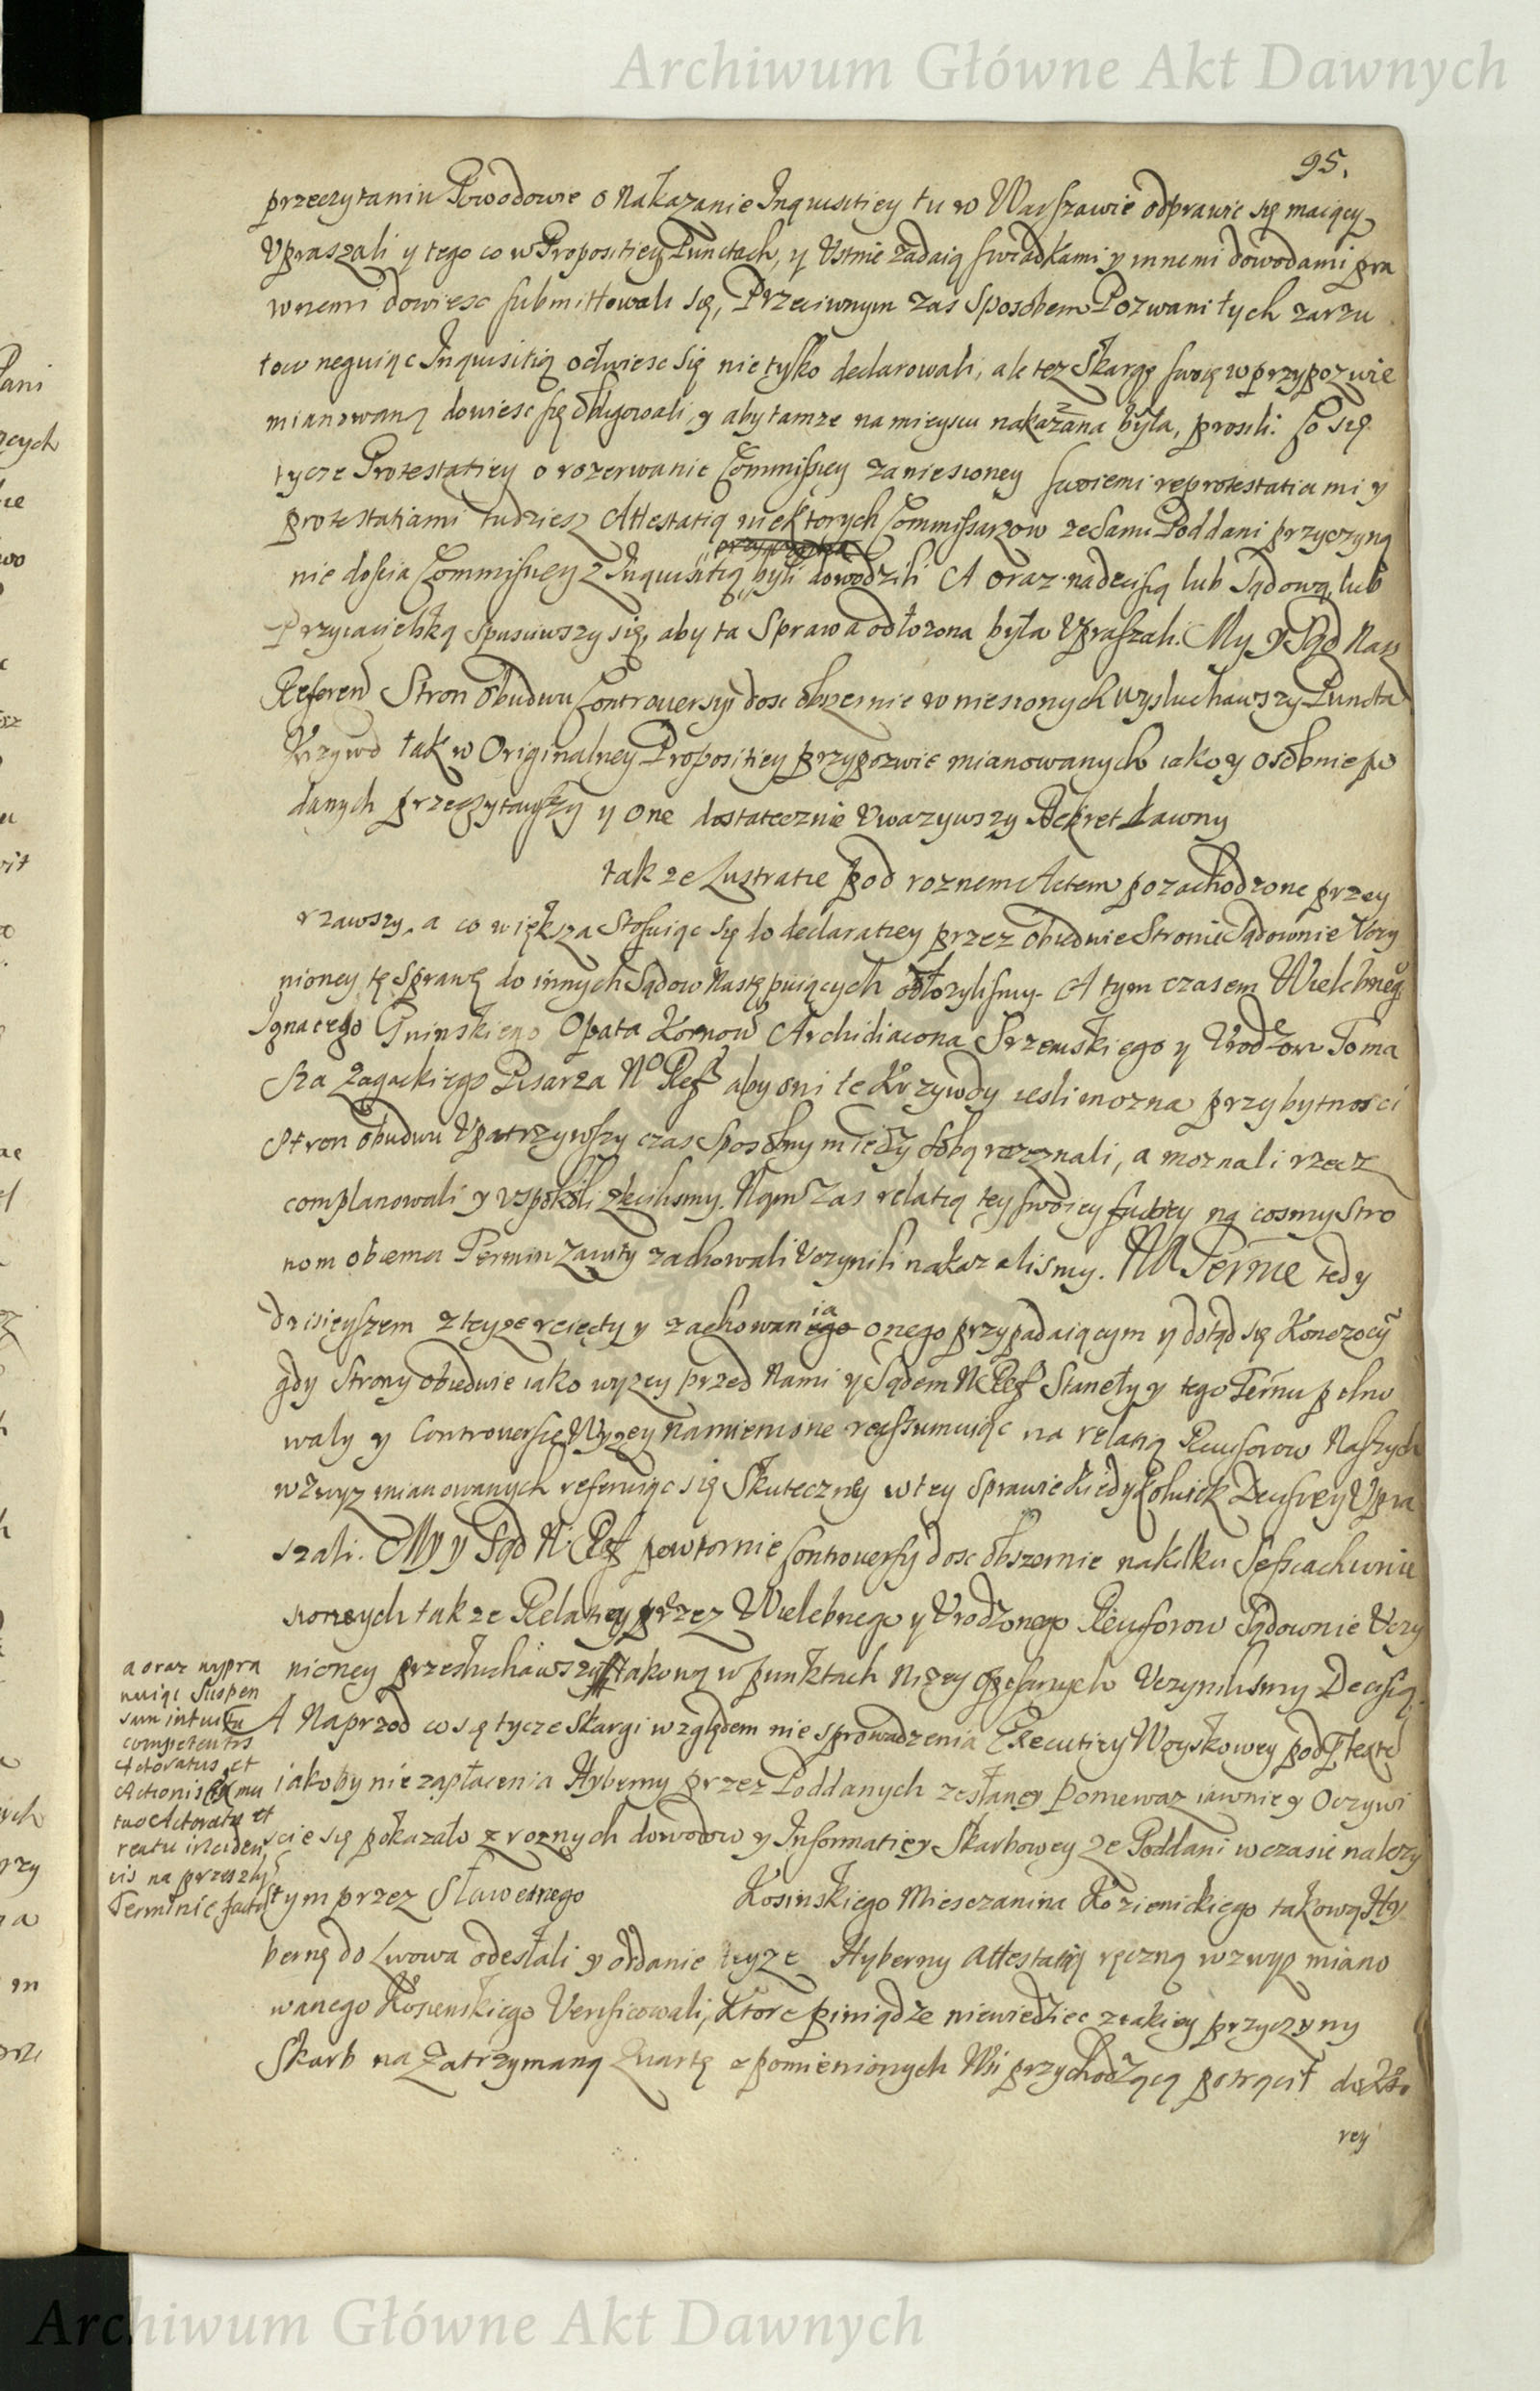 Archiwum Główne Akt Dawnych
95.
przeczytaniu Powodowie o Nakazanie Inquisitiey tu w Warszawie odprawić się maiącey
Upraszali y tego co w Propositiey Punctach, y Ustnie zadaią swiadkami y innemi dowodami pra
wnemi dowiesc submittowali się, Przeciwnym zas sposobem Pozwani tych zarzu
tow neguiąc Inquisitią odwiesc się nie tylko declarowali, ale tez Skargę swoię w przypozwie
mianowaną dowiesc się obligowali y aby tamze na mieyscu nakazana była, prosili: Co się
tycze Protestatiey o rozerwanie Commissiey zaniesioney swoiemi reprotestatiami y
protestatiami tudziesz Attestatią niektorych Commissarzow ze sami Poddani przyczyną
nie doscia Commissiey z Inquisitią byli dowodzili A oraz na decisią lub Sądową, lub
Przyiacielską spusciwszy się, aby ta Sprawa odłozona była Upraszali. My y Sąd Nasz
Referen Stron obudwu Controversyi dosc obszernie wniesionych wysłuchawszy Puncta
Krzywd tak w Originalney Propositiey przypozwie mianowanych iako y osobnie po
danych przeczytawszy y one dostatecznie Uwazywszy Dekret dawny
takze Lustratie pod roznem Actem pozachodzone przey
rzawszy, a co większa stosuiąc się do declaratiey przez obiedwie Stronie Sądownie Uczy
nioney tę Sprawę do innych Sądow Następuiących odłozylismy. A tym czasem Wielebnego
Ignacego Gninskiego Opata Archidiacona Srzemskiego y Urodzonem Toma
sza Zagackiego Pisarza No Reff aby oni te Krzywdy iesli mozna przy bytnosci
Stron obudwu Upatrzywszy czas sposobny między sobą rozeznali, a mozna li rzecz
complanowali y uspokoili zlecilismy. Nam zas relatią tey swoiey na cosmy Stro
nom obiema Termin Zawity zachowali Uczynili nakazalismy. Na Terminie tedy
dzisieyszem z teyze reiecty y zachowania onego przypadaiącym y dotąd się Konczocym
gdy Strony obiedwie iako wyzey przed Nami y Sądem N Reff Stanęły y tego Terminu pilno
wały y Controversie Wyzey namienione reassumuiąc na relatią Revisorow Naszych
wzwyz mianowanych referuiąc się Skuteczney w tey sprawie Kiedy Kolwiek Decisiey Upra
szali. My y Sąd N: Reff powtornie Controversy dosc obszernie na kilku Sessiach wnie
sionych takze Relatiey przez Wielebnego y Urodzonego Revisorow Sądownie Uczy
nioney przesłuchawszy takową w punktach nizey opisanych Uczynilismy Decisią.
A Naprzod co się tycze Skargi względem nie sprowadzenia Executiey Woyskowey pod Ptextem
iakoby nie zapłacenia Hyberny przez Poddanych zesłaney Poniewaz iawnie y Oczywi
scie się pokazało z roznych dowodow y Informatiey Skarbowey ze Poddani w czasie nalezy
tym przez Sławetnego Kosinskiego Miesczanina Kozienickiego takową Hy
bernę do Lwowa odesłali y oddanie teyze Hyberny attestatią ręczną wzwyz miano
wanego Kosinskiego Verificowali, Ktore piniądze niewiedziec z iakiey przyczyny
Skarb na Zatrzymaną Kwartę z pomienionych Wsi przychodzącą potrącił do Kto
rey
a oraz wypra
wuiąc Suspen
sum intuitu
competentis
Actoratus et
Actionis ex mu
tuo Actoratu et
reatu inciden
tis na przeszły
Terminie
Archiwum Główne Akt Dawnych